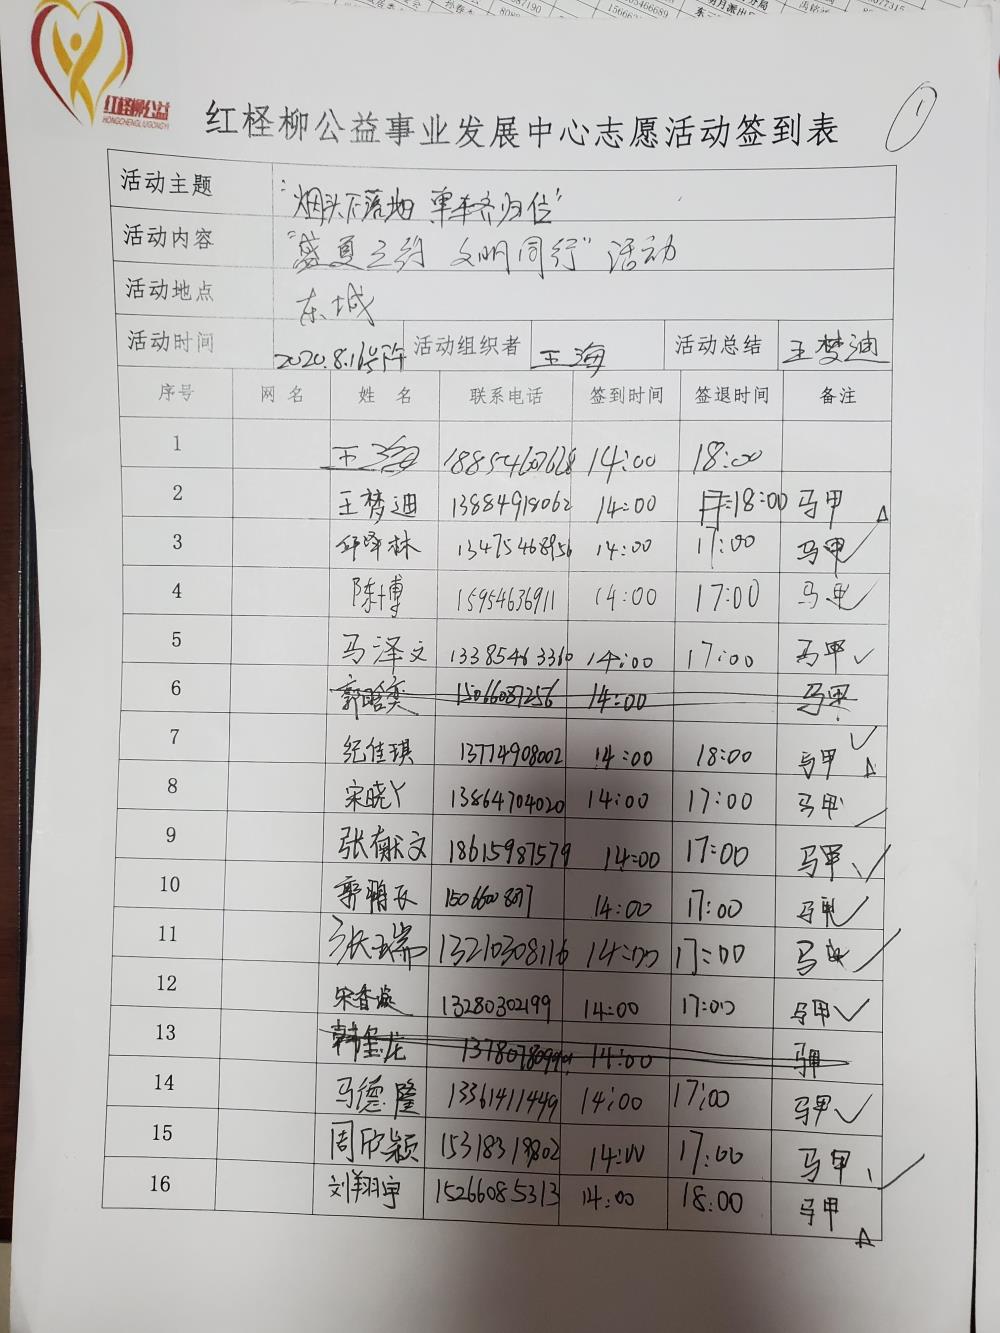 红柽柳公益
HONGCHENGLIUGONGYI
红柽柳公益事业发展中心志愿活动签到表
1
活动主题 "烟头不落地 单车齐归位"
活动内容 "盛夏之约 文明同行"活动
活动地点 东城
活动时间 2020.8.16 活动组织者 王海 活动总结 王梦迪
序号 网名 姓名 联系电话 签到时间 签退时间 备注
1 王海 18854607628 14:00 18:00
2 王梦迪 13884918062 14:00 18:00 马甲
3 邱泽林 13475468956 14:00 17:00 马甲
4 陈博 15954636911 14:00 17:00 马甲
5 马泽文 13385463360 14:00 17:00 马甲
6 郭晗奕 15066087256 14:00 马甲
7 纪佳琪 13774908002 14:00 18:00 马甲
8 宋晓丫 13864704020 14:00 17:00 马甲
9 张献文 18615987579 14:00 17:00 马甲
10 14:00 17:00 马甲
11 张瑞 13210308116 14:00 17:00 马甲
12 宋香凝 13280302199 14:00 17:00 马甲
13 龙 14:00 马甲
14 马德隆 13361411449 14:00 17:00 马甲
15 周欣颖 14:00 17:00 马甲
16 刘翔宇 15266085313 14:00 18:00 马甲